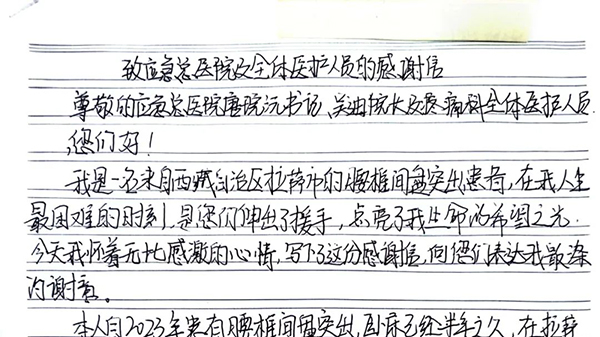 致应急总医院及全体医护人员的感谢信
尊敬的应急总医院唐院沅书记,吴迪院长及疼痛科全体医护人员
您们好!
我是一名来自西藏自治区拉萨市的腰椎间盘突出患者,在我人生
最困难的时刻,是您们伸出了援手,点亮了我生命的希望之光.
今天我怀着无比感激的心情,写下了这份感谢信,向您们表达我最深
的谢意。
本人自2023年患有腰椎间盘突出,卧床已经半年之久,在拉萨